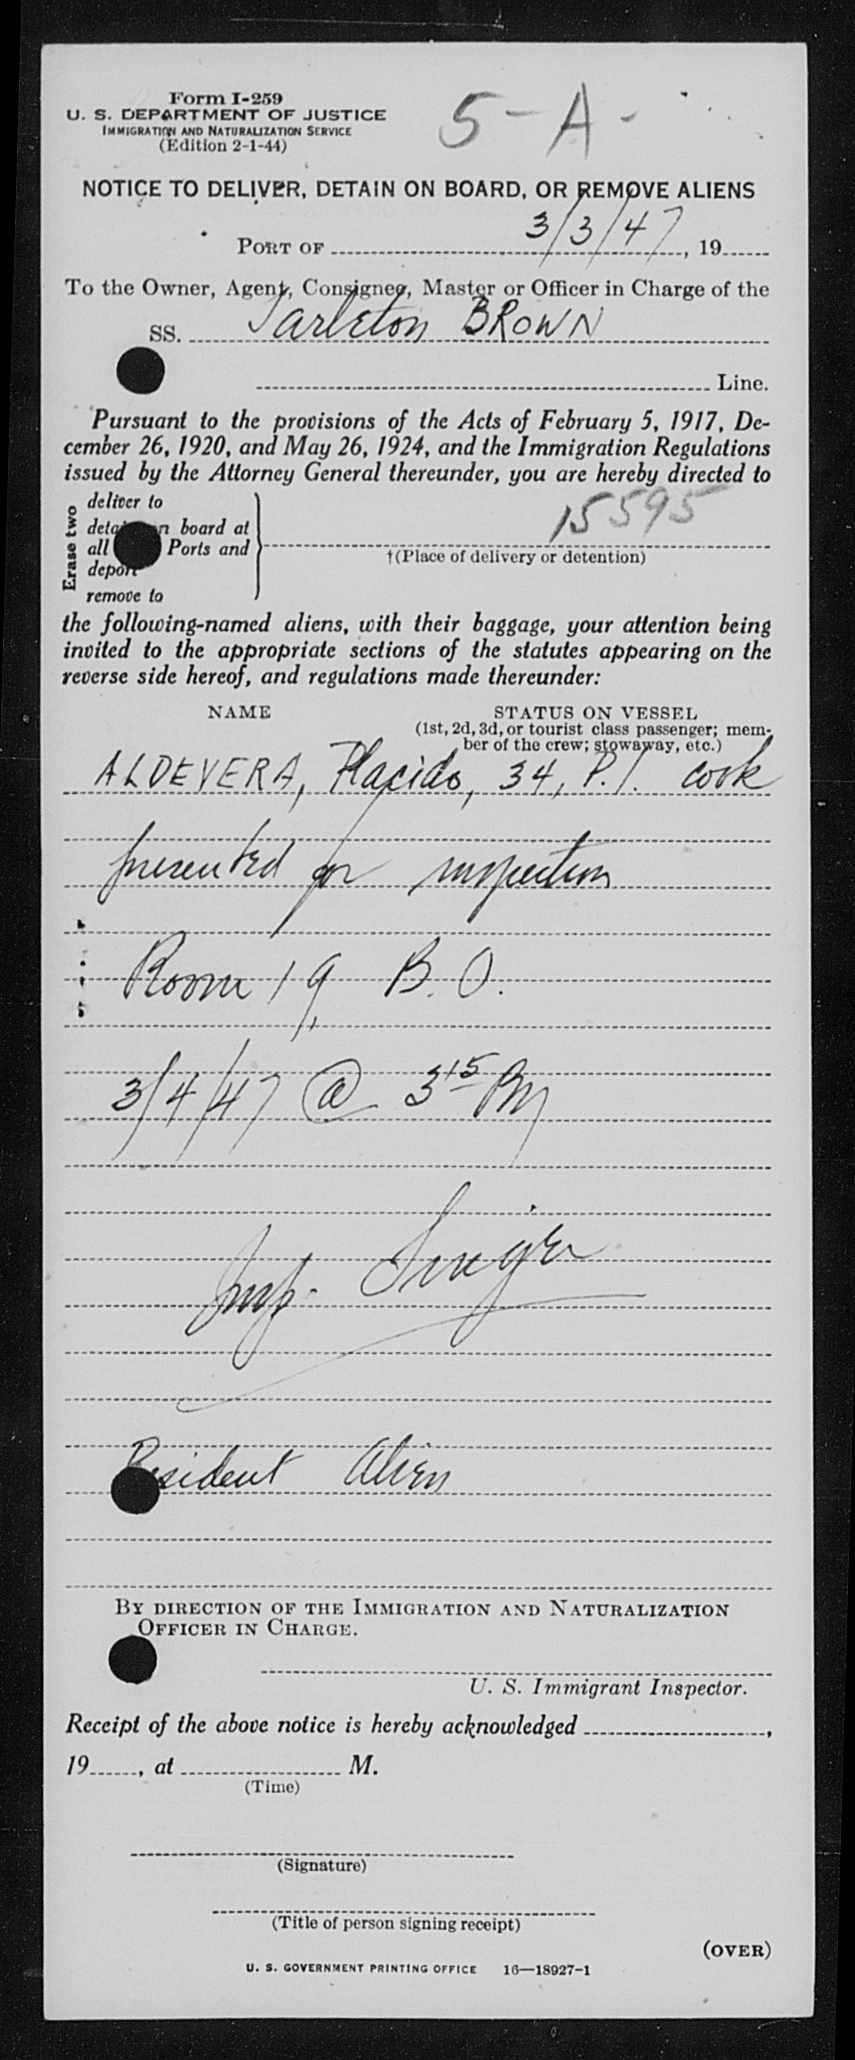 Form I-259
U. S. DEPARTMENT OF JUSTICE
IMMIGRATION AND NATURALIZATION SERVICE
(Edition 2-1-44)
5-A-
NOTICE TO DELIVER, DETAIN ON BOARD, OR REMOVE ALIENS
PORT OF 3/3/47, 19
To the Owner, Agent, Consignee, Master or Officer in Charge of the
SS. Tarleton BROWN
Line.
Pursuant to the provisions of the Acts of February 5, 1917, De-
cember 26, 1920, and May 26, 1924, and the Immigration Regulations
issued by the Attorney General thereunder, you are hereby directed to
Erase two
deliver to
detain on board at
all Ports and
deport
remove to
15595
†(Place of delivery or detention)
the following-named aliens, with their baggage, your attention being
invited to the appropriate sections of the statutes appearing on the
reverse side hereof, and regulations made thereunder:
NAME STATUS ON VESSEL
(1st, 2d, 3d, or tourist class passenger; mem-
ber of the crew; stowaway, etc.)
ALDEVERA, Placido, 34, P.I. cook
presented for inspection
Room 19, B.O.
3/4/47 @ 3 15 PM
Insp.
Resident Alien
BY DIRECTION OF THE IMMIGRATION AND NATURALIZATION
OFFICER IN CHARGE.
U. S. Immigrant Inspector.
Receipt of the above notice is hereby acknowledged ,
19 , at M.
(Time)
(Signature)
(Title of person signing receipt)
(OVER)
U. S. GOVERNMENT PRINTING OFFICE 16—18927-1